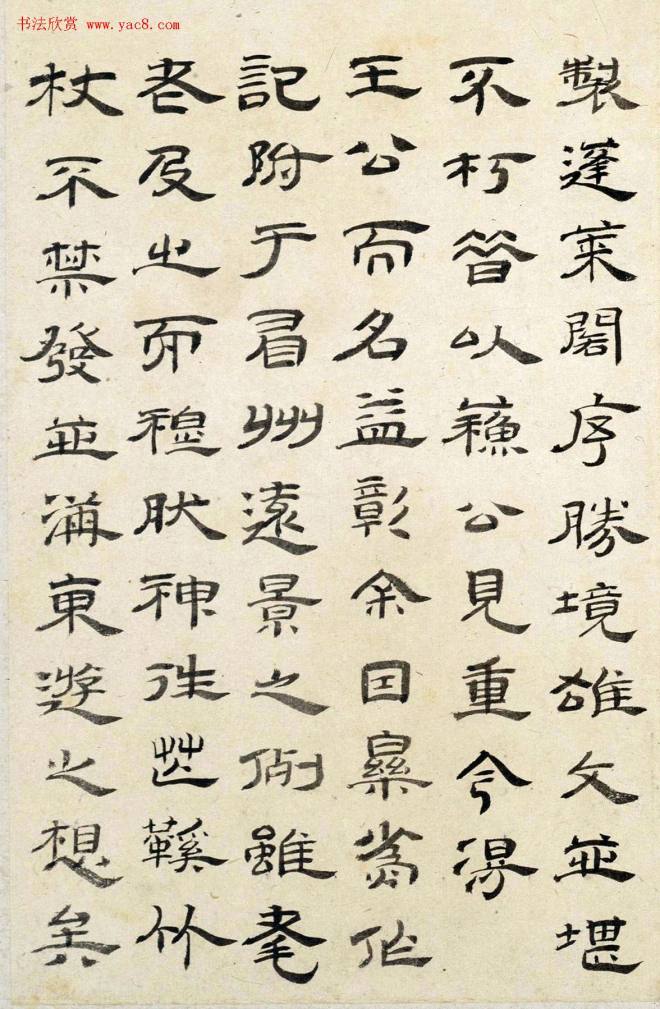 书法欣赏 www.yac8.com
製蓬萊閣序勝境雄文並堪
不朽昔以蘓公見重今得
王公而名益彰余囙作
記附于眉州遠景之例雖耄
老及之而穆肰神往芒鞵竹
杖不禁發並東遊之想矣